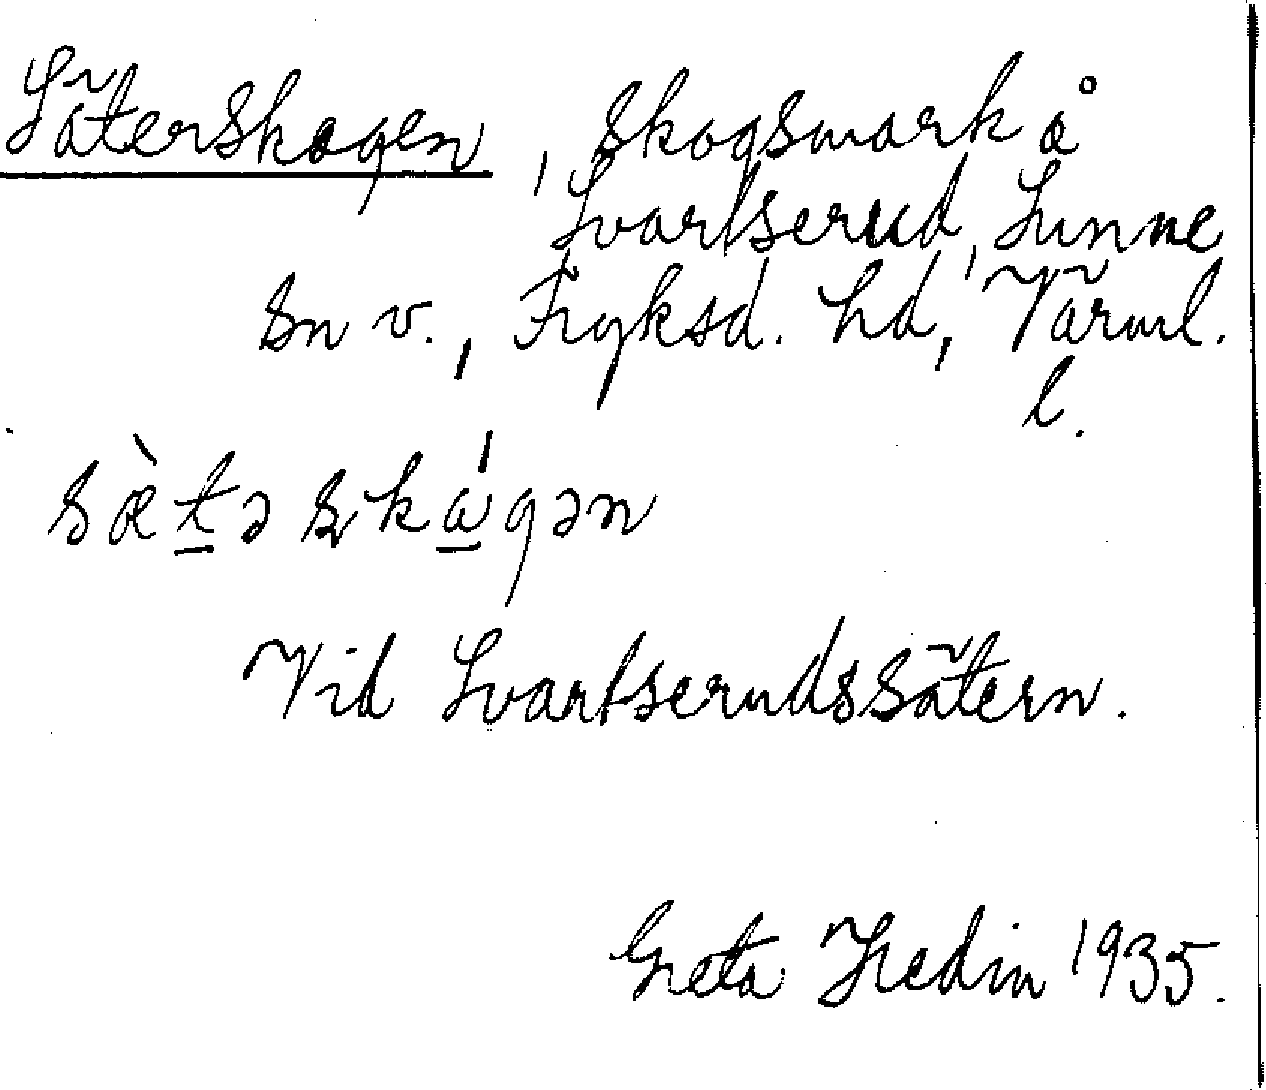 Säterskogen, skogsmark å
Svartserud, Sunne
sn v., Fryksd. hd, Värml.
l.
sæ̀t̲əʂkɑ̲́gən
Vid Svartserudssätern.
Greta Hedin 1935.